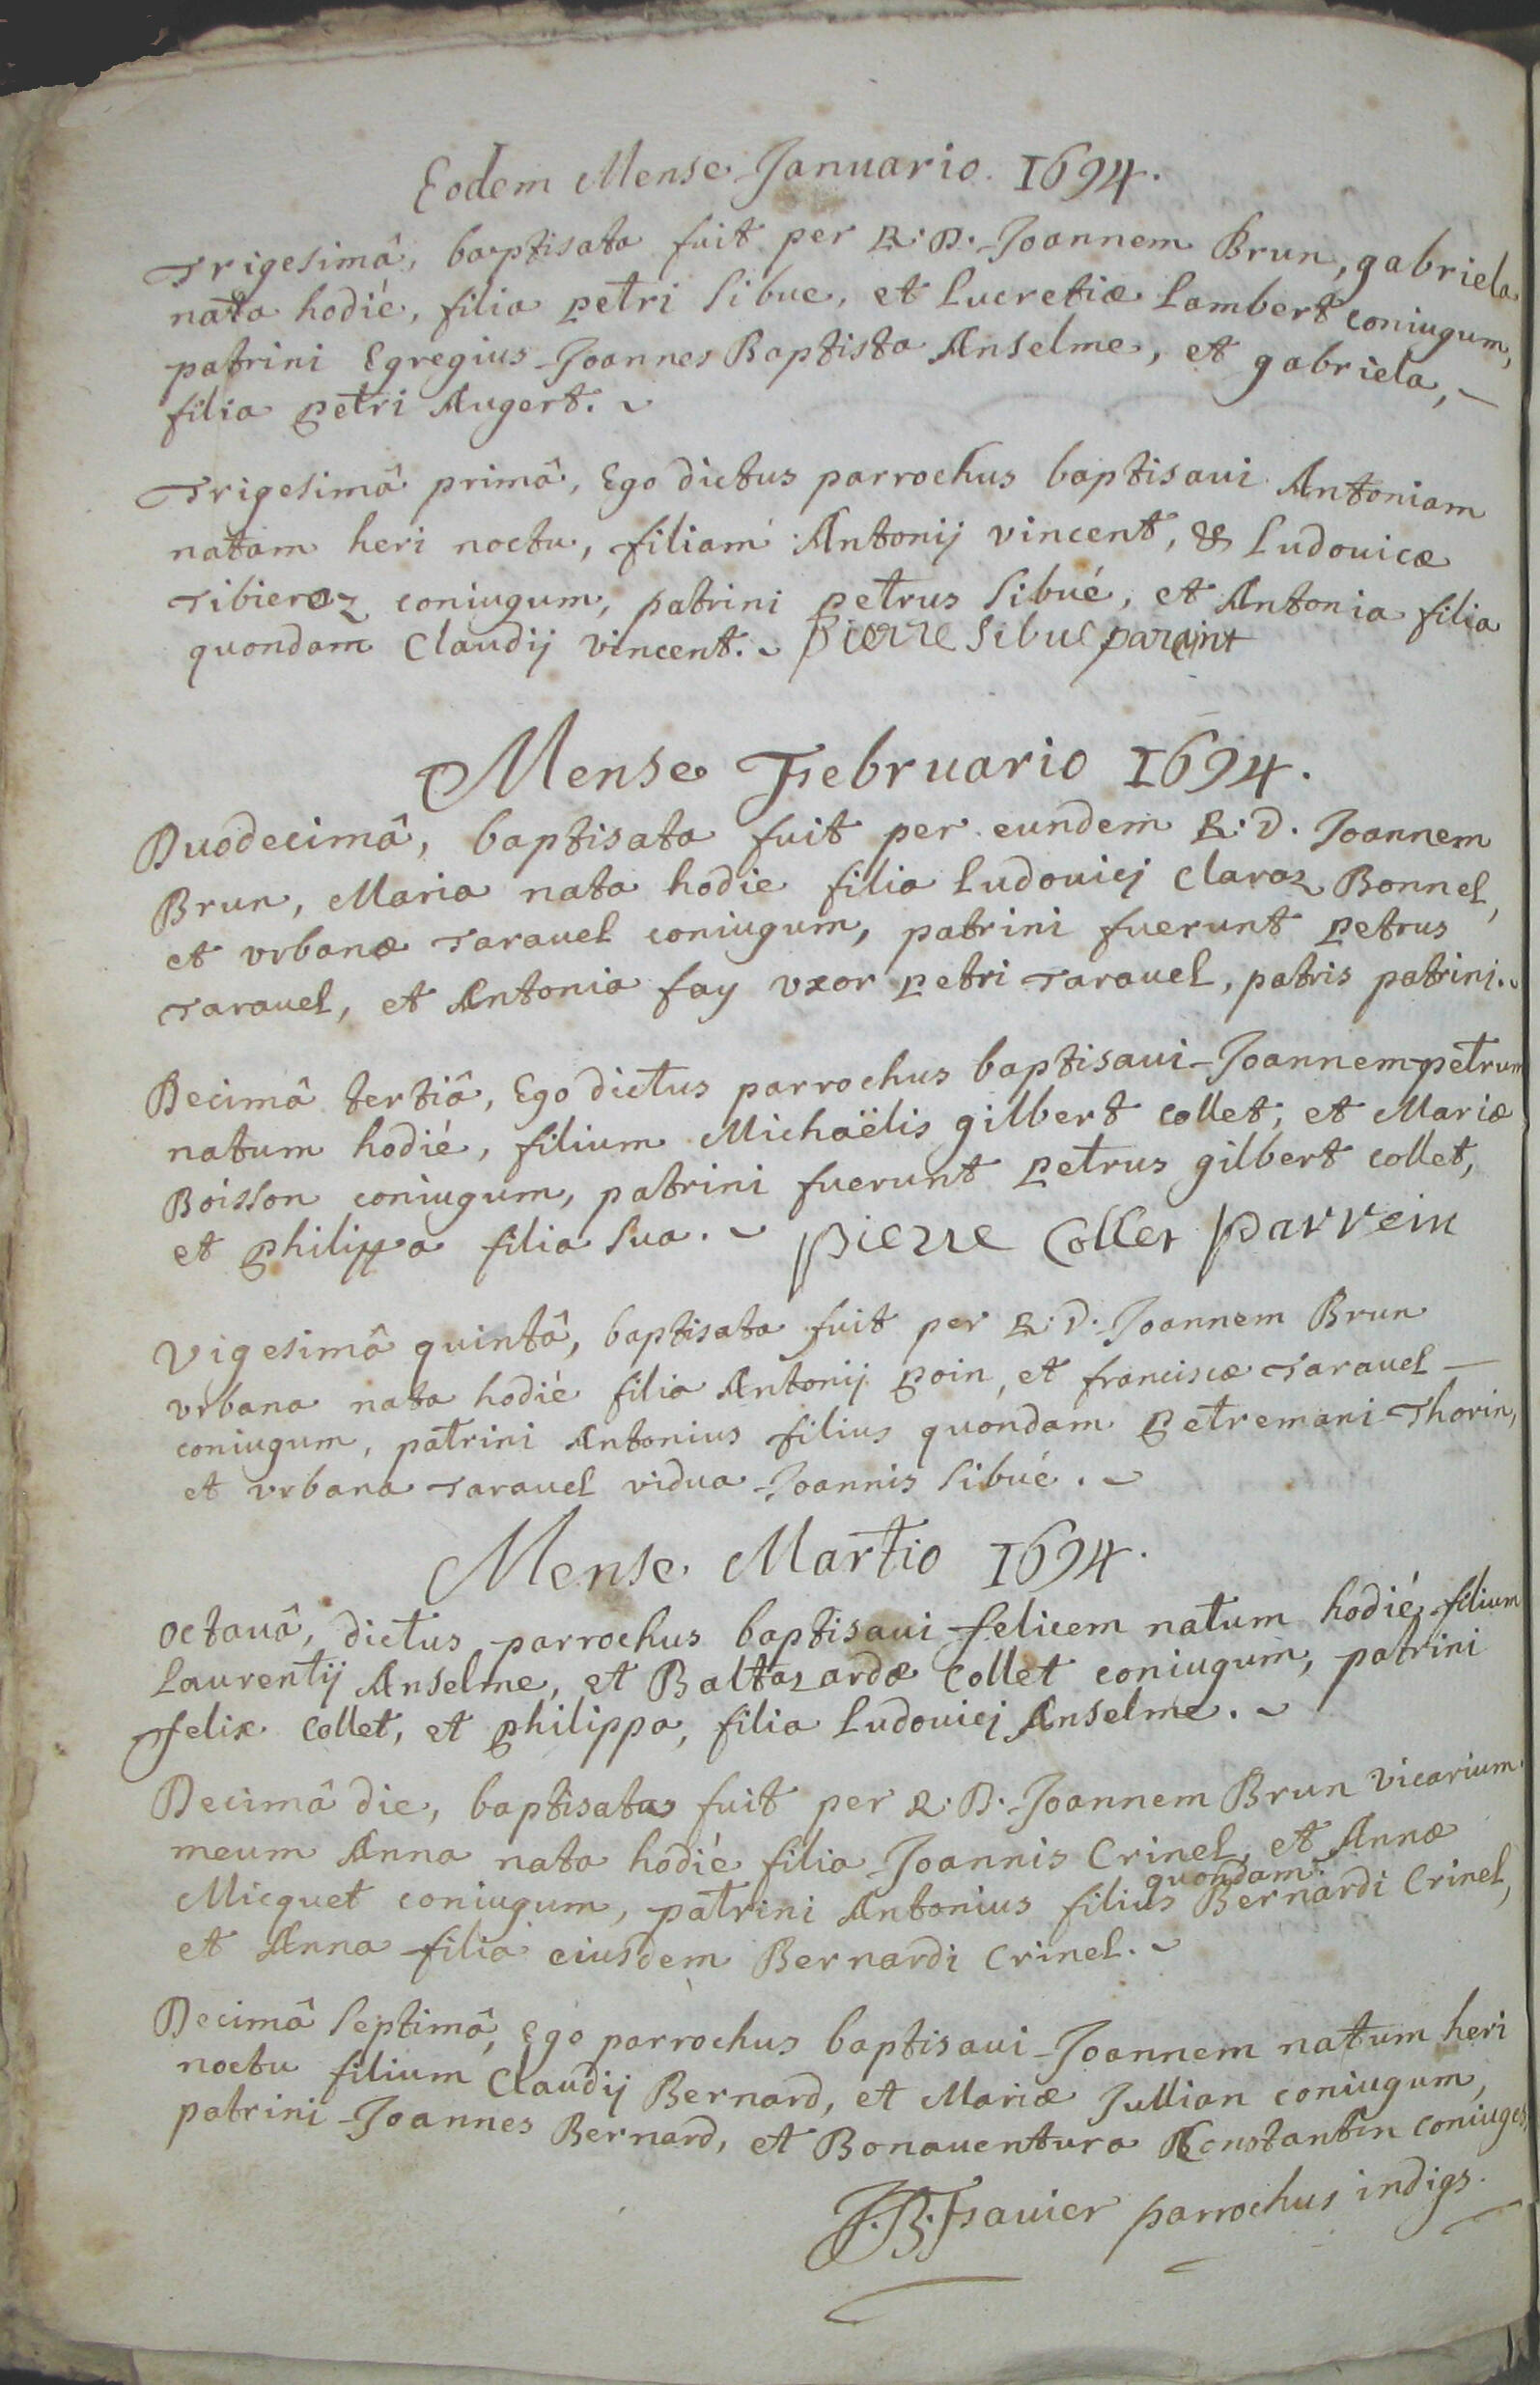 Eodem Mense Januario. 1694.
Trigesimâ, baptisata fuit per R. D. Joannem Brun, gabriela
nata hodié, filia petri Sibue, et Lucretiæ Lambert coniugum,
patrini Egregius Joannes Baptista Anselme, et gabriela, –
filia petri Augert.
Trigesimâ primâ, Ego dictus parrochus baptisaui Antoniam
natam heri noctu, filiam Antonij vincent, & Ludouicæ
Tibieroz coniugum, patrini petrus Sibué, et Antonia filia
quondam Claudij vincent. Pierre Sibue paraint
Mense Februario 1694.
Duodecimâ, baptisata fuit per eundem R. D. Joannem
Brun, Maria nata hodie filia Ludouicj Claraz Bonnel,
et vrbanæ Tarauel coniugum, patrini fuerunt petrus
Tarauel, et Antonia fay vxor petri Tarauel, patris patrini.
Decimâ tertiâ, Ego dictus parrochus baptisaui Joannem-petrum
natum hodié, filium Michaëlis gilbert collet, et Mariæ
Boisson coniugum, patrini fuerunt petrus gilbert collet,
et philippa filia sua. pierre Collet parrein
Vigesimâ quintâ, baptisata fuit per R. D. Joannem Brun
vrbana nata hodié filia Antonij poin, et franciscæ Tarauel –
coniugum, patrini Antonius filius quondam petremani Thorin,
et vrbana Tarauel vidua Joannis Sibué.
Mense Martio 1694.
octauâ, dictus parrochus baptisaui felicem natum hodié, filium
Laurentij Anselme, et Baltazardæ Collet coniugum, patrini
felix Collet, et philippa, filia Ludouicj Anselme.
Decimâ die, baptisata fuit per R. D. Joannem Brun vicarium
meum Anna nata hodié filia Joannis Crinel, et Annæ
Micquet coniugum, patrini Antonius filius quondam Bernardi Crinel,
et Anna filia eiusdem Bernardi Crinel.
Decimâ septimâ, Ego parrochus baptisaui Joannem natum heri
noctu filium Claudij Bernard, et Mariæ Jullian coniugum,
patrini Joannes Bernard, et Bonauentura Constantin coniuges
J. B. Fsauier parrochus indigs.